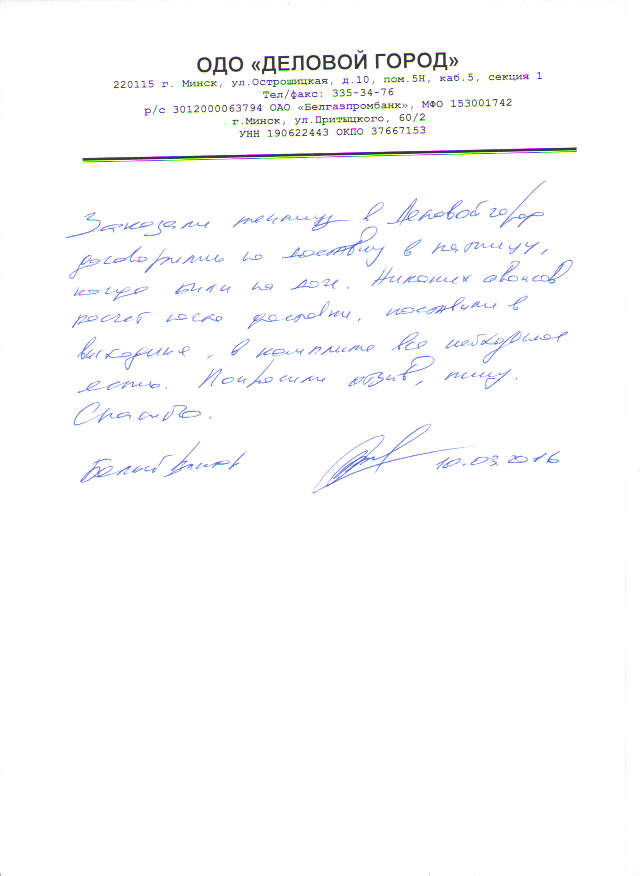 ОДО «ДЕЛОВОЙ ГОРОД»
220115 г. Минск, ул.Острошицкая, д.10, пом.5Н, каб.5, секция 1
Тел/факс: 335-34-76
р/с 3012000063794 ОАО «Белгазпромбанк», МФО 153001742
г.Минск, ул.Притыцкого, 60/2
УНН 190622443 ОКПО 37667153
Заказали теплицу в Деловой город
договорились на доставку в пятницу,
когда были на даче. Никаких авансов
расчет после доставки, поставили в
выходные, в комплите все необходимое
есть. Попросили отзыв, пишу.
Спасибо.
Белый 10.03.2016